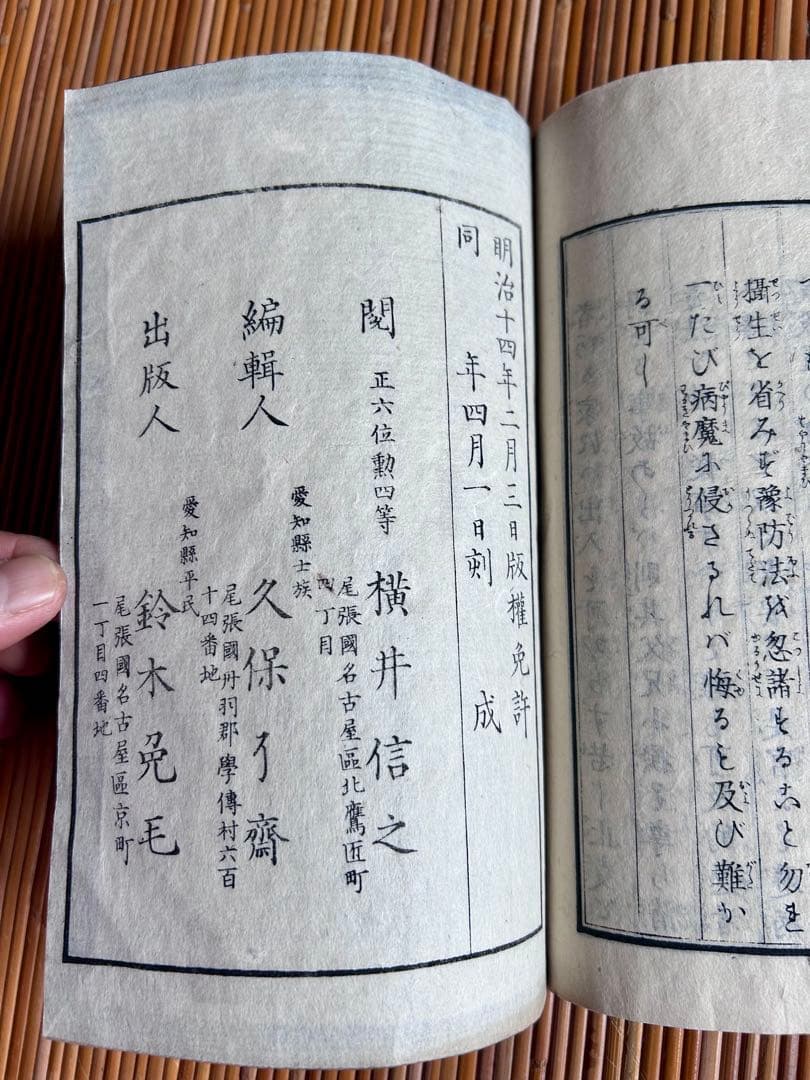 攝生を省みず豫防法を忽諸することゝ勿れ
一たび病魔に侵さるれバ悔るを及び難か
る可し
明治十四年二月三日版權免許
同年四月一日刻成
閲
正六位勲四等
横井信之
尾張國名古屋區北鷹匠町
四丁目
編輯人
愛知縣士族
久保了齋
尾張國丹羽郡學傳村六百
十四番地
出版人
愛知縣平民
鈴木兔毛
尾張國名古屋區京町
一丁目四番地